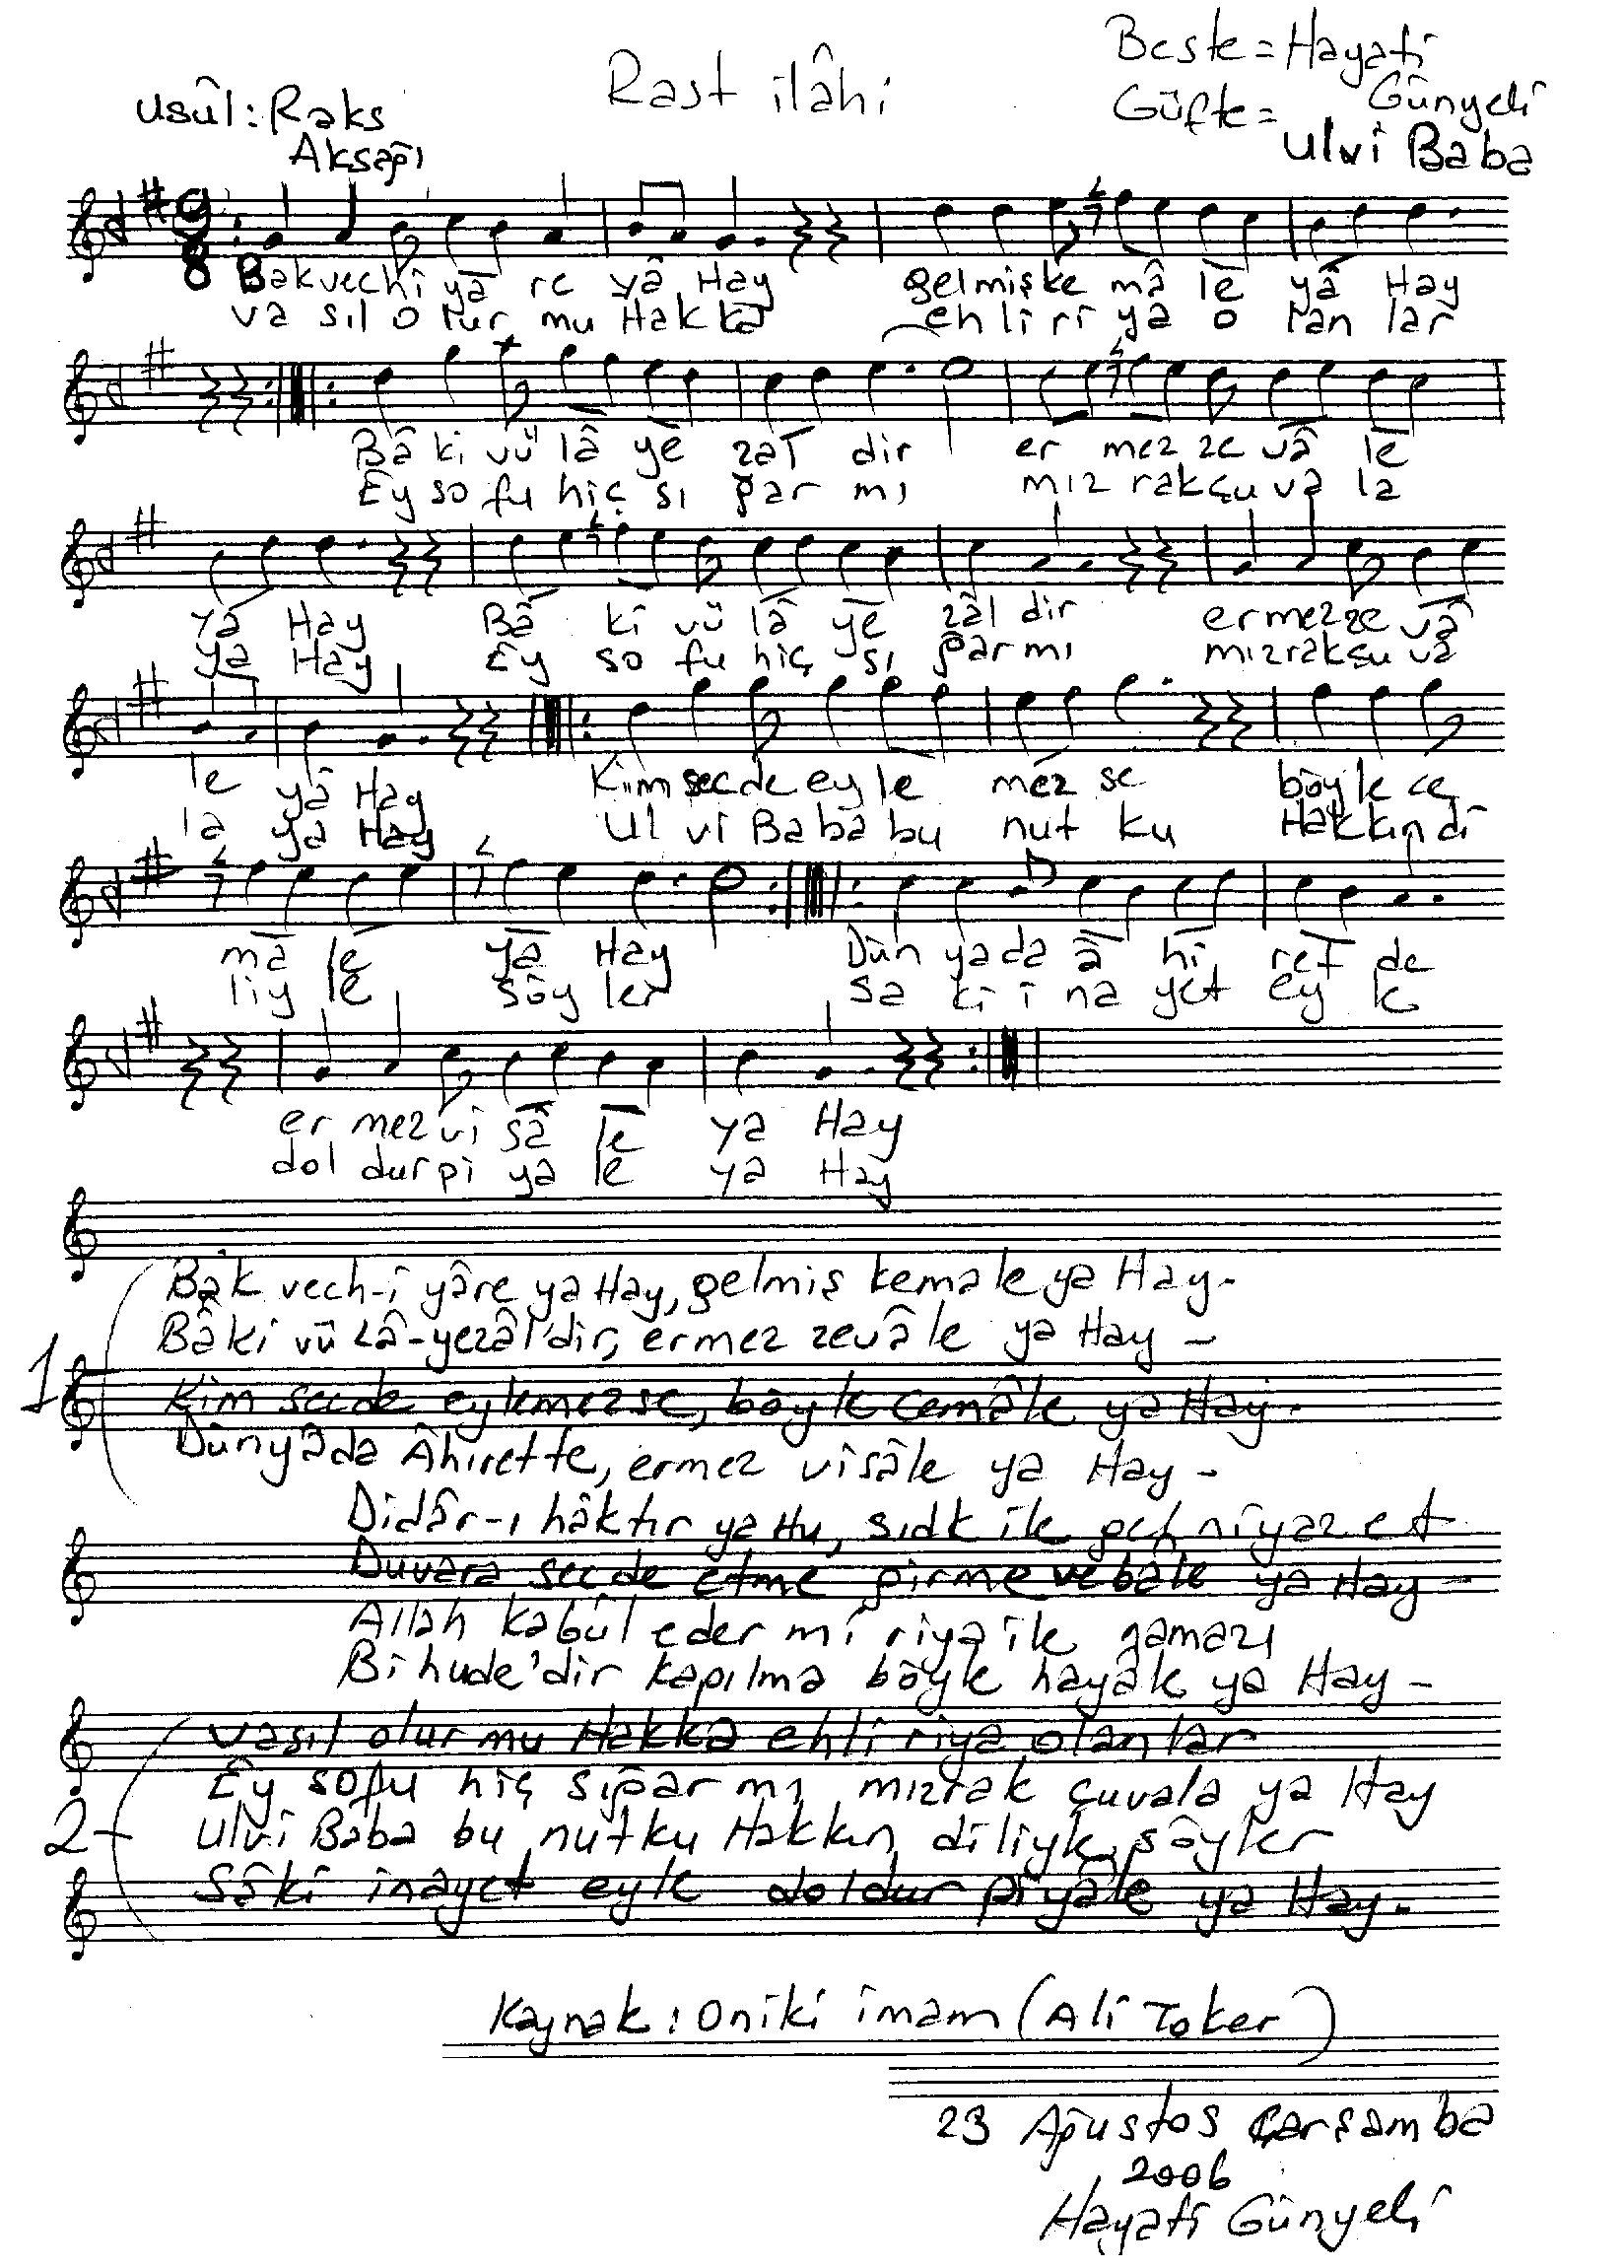 Rast ilâhi
Beste = Hayati Günyeli
Güfte = Ulvi Baba
Usûl : Raks Aksağı
9
8
Bak vech î yâ re yâ Hay gelmiş ke mâ le yâ Hay
va sıl o lur mu Hak ka ehl i ri ya o lan lar
Bâ ki vü lâ ye zal dir er mez ze vâ le
Ey so fu hiç sı ğar mı mız rak çu va la
Ya Hay Bâ ki vü lâ ye zâl dir er mez ze vâ
ya Hay Ey so fu hiç sı ğar mı mız rak çu va
le yâ Hay Kim sec de ey le mez se böy le ce
la ya Hay Ul vi Ba ba bu nut ku Hak kın di
mâ le ya Hay Dün ya da â hi ret de
liy le söy ler sa ki i na yet ey le
er mez vi sâ le ya Hay
dol dur pi ya le ya Hay
Bak vech-i yâre ya Hay, gelmiş kemale ya Hay -
Bâki vü Lâ-yezâl'dir, ermez zevâle ya Hay -
1 Kim secde eylemezse, böyle cemâle ya Hay -
Dünyâda Âhirette, ermez visâle ya Hay -
Didâr-ı hâktır ya Hu, sıdk ile geh niyaz et
Duvara secde etme girme vebâle ya Hay -
Allah kabûl eder mi riya ile namazı
Bihude'dir kapılma böyle hayâle ya Hay -
Vasıl olur mu Hakka ehli riya olanlar
Ey sofu hiç sığar mı, mızrak çuvala ya Hay
2- Ulvi Baba bu nutku Hakkın diliyle söyler
Sâki inayet eyle doldur piyâle ya Hay -
Kaynak : Oniki imam (Ali Toker)
23 Ağustos Çarşamba
2006
Hayati Günyeli